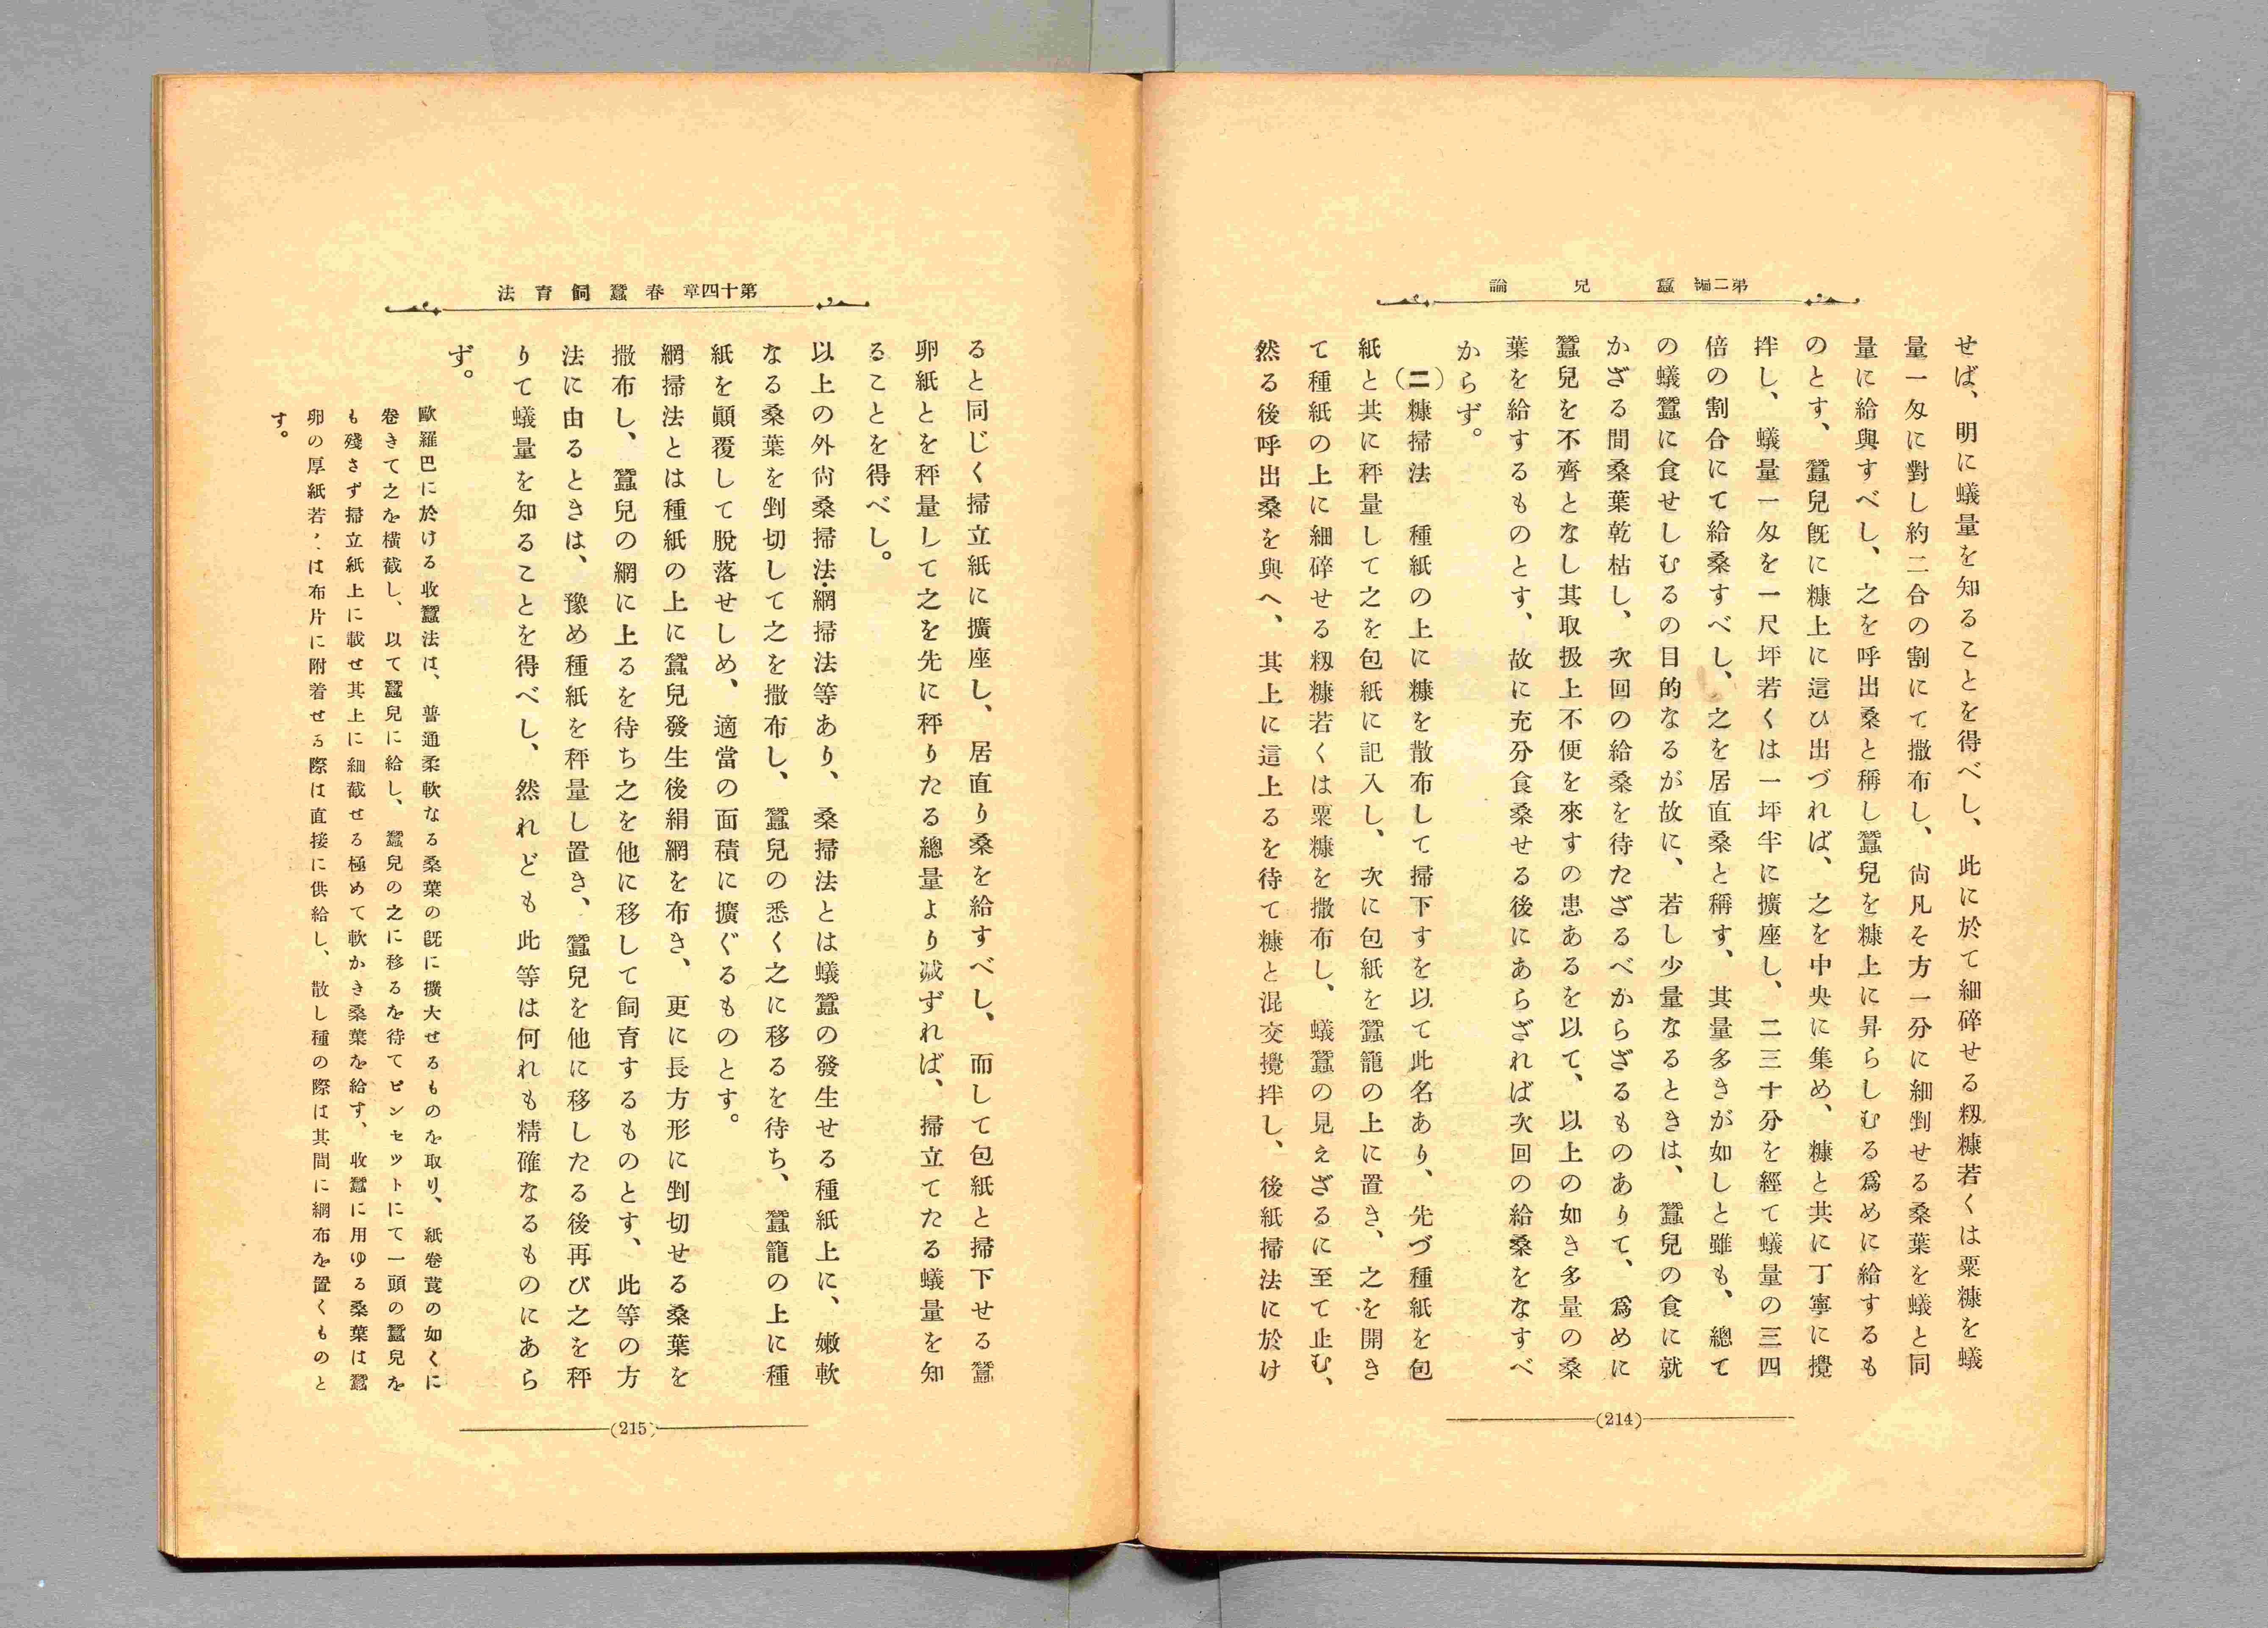 第二編 蠶兒論
せば、明に蟻量を知ることを得べし、此に於て細碎せる籾糠若くは粟糠を蟻
量一匁に對し約二合の割にて撒布し、尙凡そ方一分に細剉せる桑葉を蟻と同
量に給與すべし、之を呼出桑と稱し蠶兒を糠上に昇らしむる爲めに給するも
のとす、蠶兒旣に糠上に這ひ出づれば、之を中央に集め、糠と共に丁寧に攪
拌し、蟻量一匁を一尺坪若くは一坪半に擴座し、二三十分を經て蟻量の三四
倍の割合にて給桑すべし、之を居直桑と稱す、其量多きが如しと雖も、總て
の蟻蠶に食せしむるの目的なるが故に、若し少量なるときは、蠶兒の食に就
かざる間桑葉乾枯し、次回の給桑を待たざるべからざるものありて、爲めに
蠶兒を不齊となし其取扱上不便を來すの患あるを以て、以上の如き多量の桑
葉を給するものとす、故に充分食桑せる後にあらざれば次回の給桑をなすべ
からず。
(二)糠掃法 種紙の上に糠を散布して掃下すを以て此名あり、先づ種紙を包
紙と其に秤量して之を包紙に記入し、次に包紙を蠶籠の上に置き、之を開き
て種紙の上に細碎せる籾糠若くは粟糠を撒布し、蟻蠶の見えざるに至て止む、
然る後呼出桑を與へ、其上に這上るを待て糠と混交攪拌し、後紙掃法に於け
(214)
第十四章 春蠶飼育法
ると同じく掃立紙に擴座し、居直り桑を給すべし、而して包紙と掃下せる蠶
卵紙とを秤量して之を先に秤りたる總量より減ずれば、掃立てたる蟻量を知
ることを得べし。
以上の外尙桑掃法・網掃法等あり、桑掃法とは蟻蠶の發生せる種紙上に、嫩軟
なる桑葉を剉切して之を撒布し、蠶兒の悉く之に移るを待ち、蠶籠の上に種
紙を顚覆して脫落せしめ、適當の面積に擴ぐるものとす。
網掃法とは種紙の上に蠶兒發生後絹網を布き、更に長方形に剉切せる桑葉を
撒布し、蠶兒の網に上るを待ち之を他に移して飼育するものとす、此等の方
法に由るときは、豫め種紙を秤量し置き、蠶兒を他に移したる後再び之を秤
りて蟻量を知ることを得べし、然れども此等は何れも精確なるものにあら
ず。
歐羅巴に於ける收蠶法は、普通柔軟なる桑葉の旣に擴大せるものを取り、紙卷莨の如くに
卷きて之を橫截し、以て蠶兒に給し、蠶兒の之に移るを待てピンセットにて一頭の蠶兒を
も殘さず掃立紙上に載せ其上に細截せる極めて軟かき桑葉を給す、收蠶に用ゆる桑葉は蠶
卵の厚紙若くは布片に附着せる際は直接に供給し、散し種の際は其間に網布を置くものと
す。
(215)